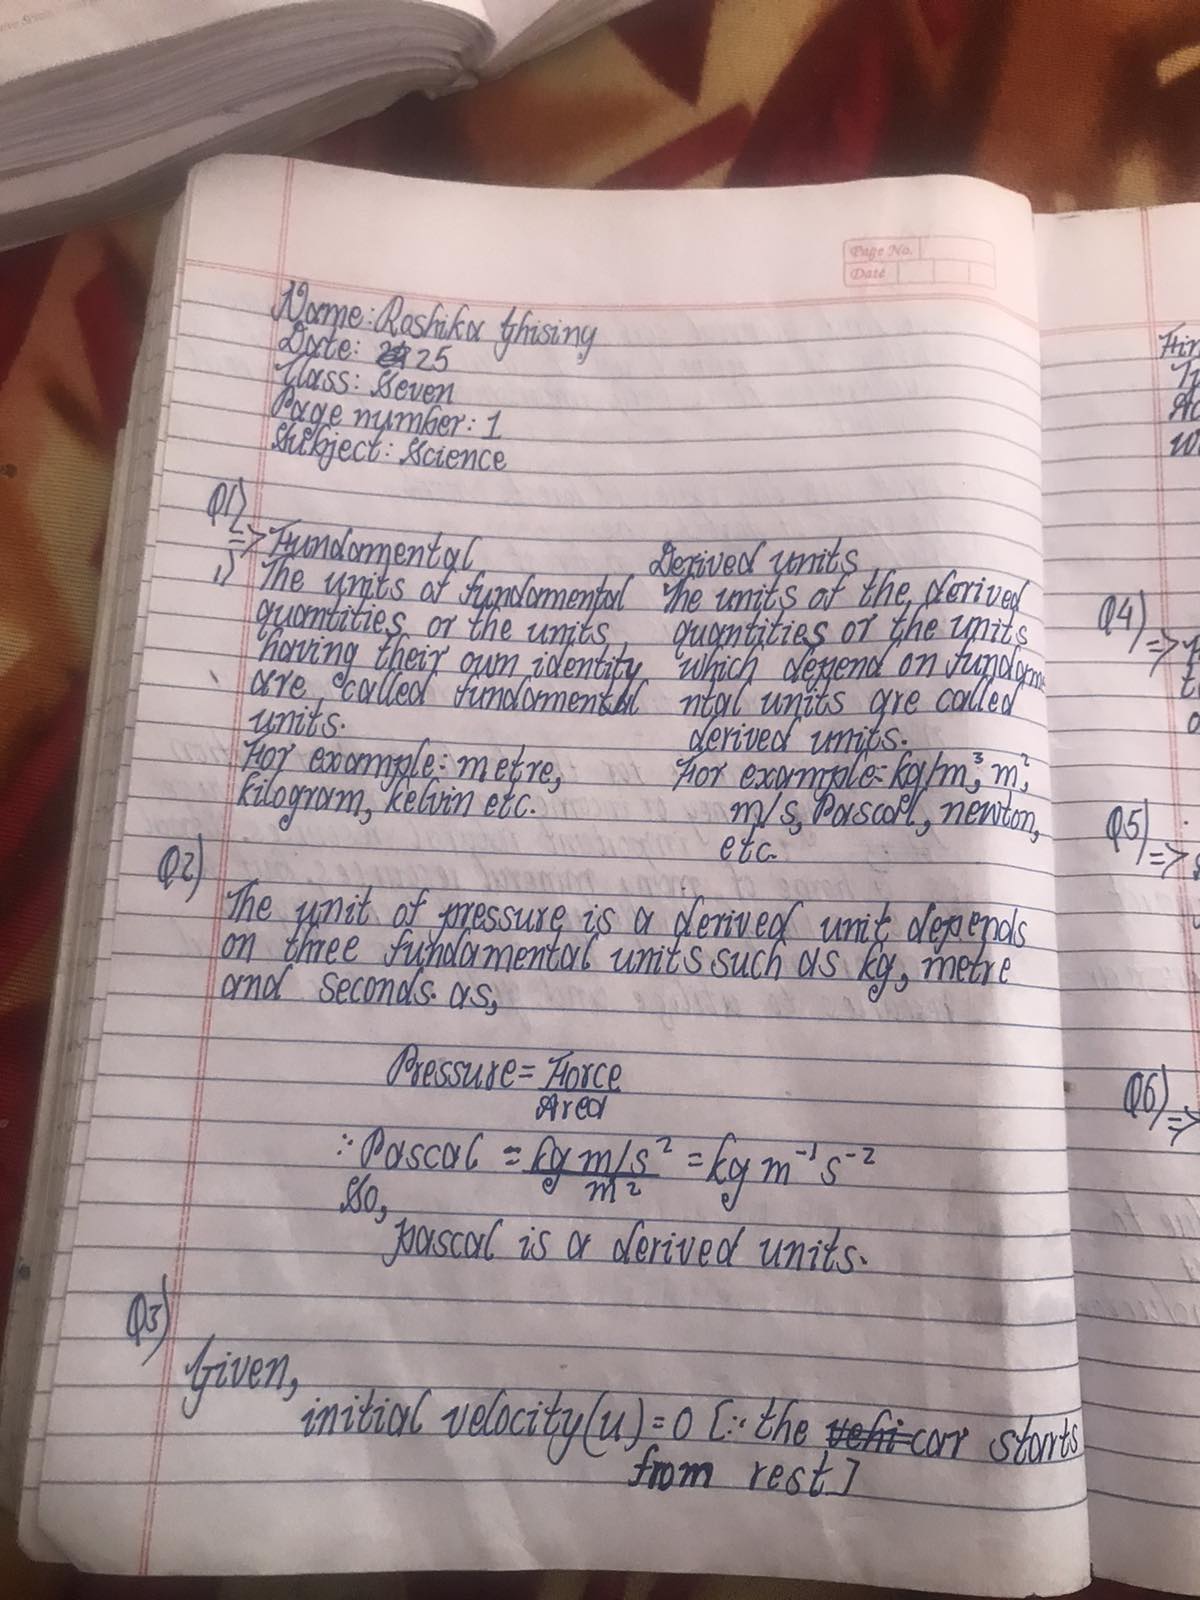 Page No.
Date
Name: Roshika Ghising
Date: 25
Class: Seven
Page number: 1
Subject: Science
Q1)
=> Fundamental
Derived units
1) The units of fundamental
quantities or the units
having their own identity
are called fundamental
units.
For example: metre,
kilogram, kelvin etc.
The units of the derived
quantities or the units
which depend on fundame
ntal units are called
derived units.
For example: kg/m³, m²,
m/s, Pascal, newton,
etc.
Q2)
The unit of pressure is a derived unit depends
on three fundamental units such as kg, metre
and seconds. as,
Pressure = Force
Area
∴ Pascal = kg m/s² = kg m⁻¹ s⁻²
m²
So,
pascal is a derived units.
Q3)
Given,
initial velocity(u) = 0 [∵ the vehi car starts
from rest]
Q4)
=>
Q5)
=>
Q6)
=>